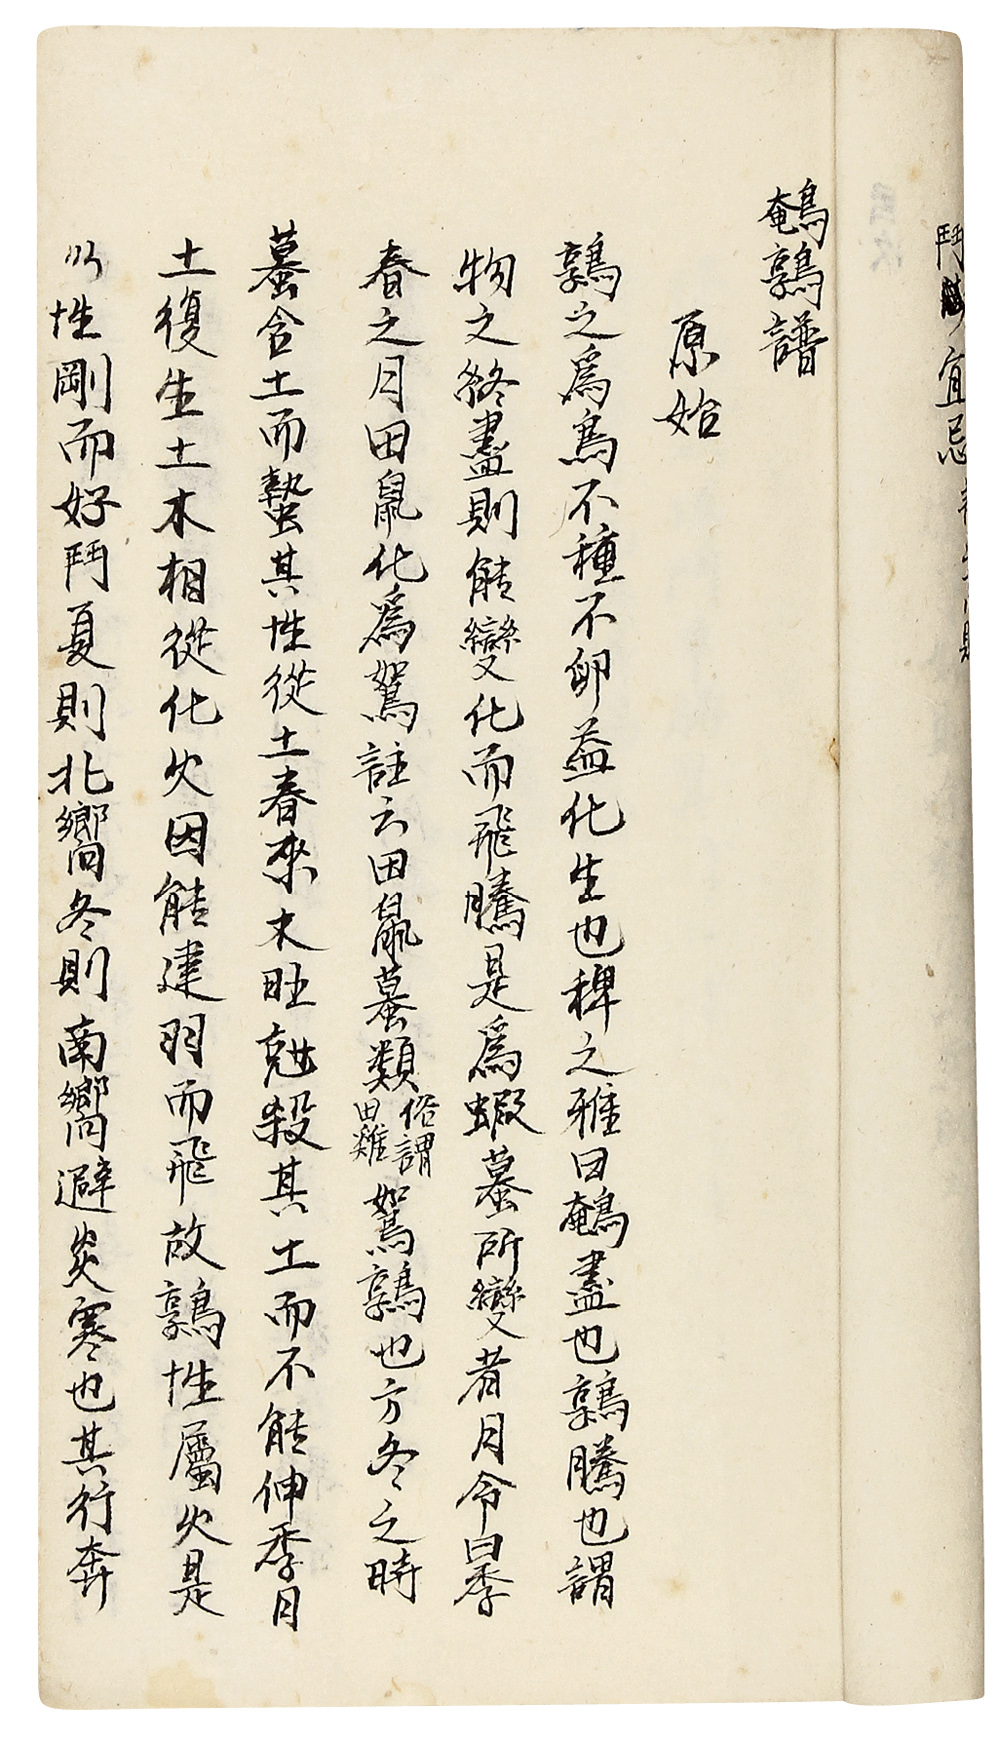 宜忌
鵪鶉譜
原始
鶉之爲鳥不種不卵葢化生也稗之雅曰鵪盡也鶉騰也謂
物之終盡則能變化而飛騰是爲蝦蟇所變者月令曰季
春之月田鼠化爲鴽註云田鼠蟇類俗謂田雞鴽鶉也方冬之時
蟇含土而蟄其性從土春來木旺尅殺其土而不能伸季月
土復生土木相從化火因能建羽而飛故鶉性屬火是
以性剛而好鬥夏則北嚮冬則南嚮避炎寒也其行奔